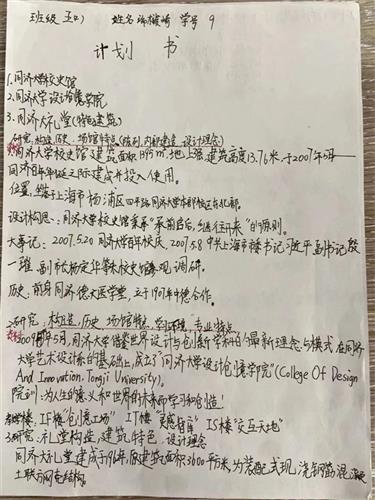 班级 五(1) 姓名 学号 9
计划 书
1.同济大学校史馆
2.同济大学设计创意学院
3.同济大礼堂(特色建筑)
研究:构造,历史,场馆特点(陈列,内部建造,设计理念)
1.同济大学校史馆,建筑面积1895m²,地上2层,建筑高度13.76米,于2007年5月
同济百年华诞之际建成并投入使用。
位置:坐落于上海市杨浦区四平路同济大学本部校区东北部。
设计构思:同济大学校史馆秉承"承前启后,继往开来"的原则。
大事记:2007.5.20同济大学百年校庆,2007.5.8中共上海市委书记习近平,副书记殷
一璀,副市长杨定华等来校史馆参观调研。
历史:前身同济德文医学堂,立于1907年中德合作。
2.研究:构造,历史,场馆特点,学习环境,专业特点
2009年5月,同济大学借鉴世界设计与创意学科的最新理念与模式,在同济
大学艺术设计系的基础上,成立了"同济大学设计创意学院"(College Of Design
And Innovation, Tongji University).
院训:为人生的意义和世界的未来而学习和创造!
教学楼:IF楼"创意工场" IT楼"灵感智库" IS楼"交互天地"
3.研究:礼堂构造,建筑特色,设计理念
同济大礼堂建成于1961年,原建筑面积3600平方米,为装配式现浇钢筋混凝
土联方网壳结构。